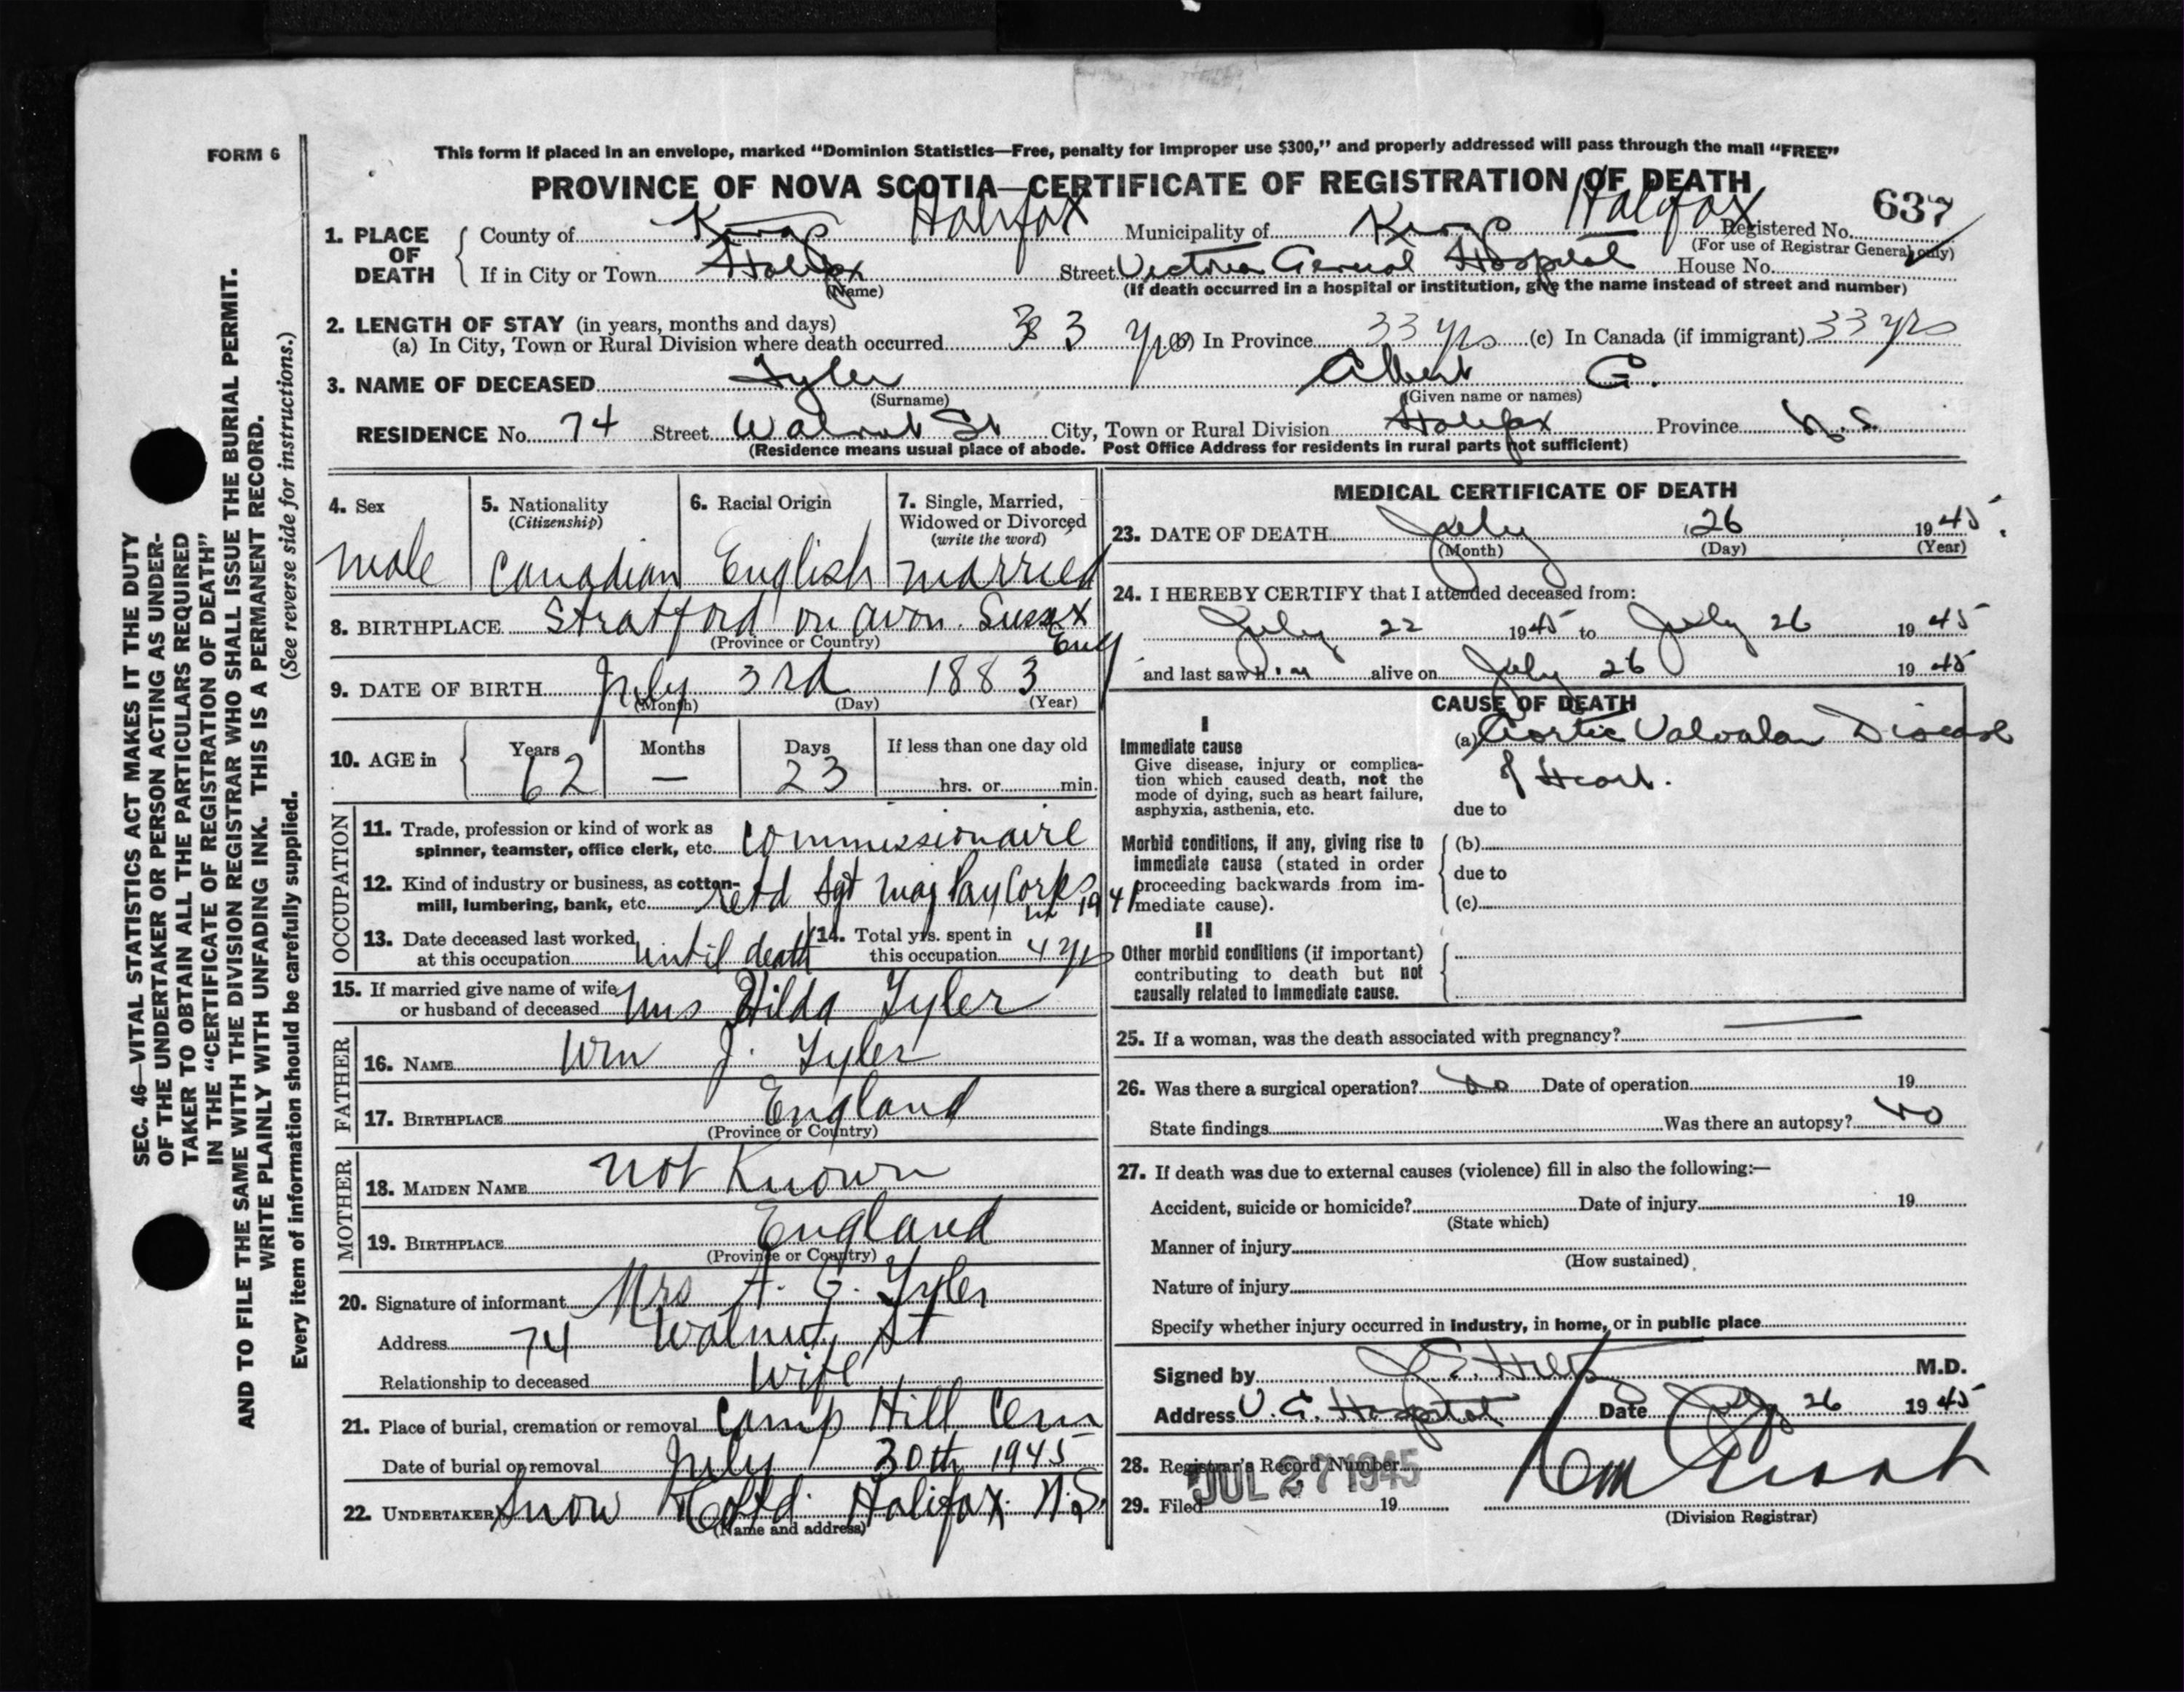 FORM 6
This form if placed in an envelope, marked “Dominion Statistics—Free, penalty for improper use $300,” and properly addressed will pass through the mail “FREE”
PROVINCE OF NOVA SCOTIA—CERTIFICATE OF REGISTRATION OF DEATH
637
Registered No.
(For use of Registrar General only)
1. PLACE OF DEATH
County of Kings Halifax Municipality of Kings Halifax
If in City or Town Halifax Street Victoria General Hospital House No.
(Name) (If death occurred in a hospital or institution, give the name instead of street and number)
2. LENGTH OF STAY (in years, months and days)
(a) In City, Town or Rural Division where death occurred 33 yrs (b) In Province 33 yrs (c) In Canada (if immigrant) 33 yrs
3. NAME OF DECEASED Tyler Albert G.
(Surname) (Given name or names)
RESIDENCE No. 74 Street Walnut St City, Town or Rural Division Halifax Province N.S.
(Residence means usual place of abode. Post Office Address for residents in rural parts not sufficient)
4. Sex
male
5. Nationality
(Citizenship)
Canadian
6. Racial Origin
English
7. Single, Married,
Widowed or Divorced
(write the word)
married
8. BIRTHPLACE Stratford on avon. Sussex Eng
(Province or Country)
9. DATE OF BIRTH July 3rd 1883
(Month) (Day) (Year)
10. AGE in
Years Months Days If less than one day old
62 — 23 hrs. or min.
OCCUPATION
11. Trade, profession or kind of work as
spinner, teamster, office clerk, etc. Commissionaire
12. Kind of industry or business, as cotton-
mill, lumbering, bank, etc. retd Sgt Maj Pay Corps in 1941
13. Date deceased last worked
at this occupation until death
14. Total yrs. spent in
this occupation 4 yrs
15. If married give name of wife
or husband of deceased Mrs Hilda Tyler
FATHER
16. NAME Wm J. Tyler
17. BIRTHPLACE England
(Province or Country)
MOTHER
18. MAIDEN NAME not Known
19. BIRTHPLACE England
(Province or Country)
20. Signature of informant Mrs A. G. Tyler
Address 74 Walnut St
Relationship to deceased Wife
21. Place of burial, cremation or removal Camp Hill Cem
Date of burial or removal July 30th 1945
22. UNDERTAKER Snow & Co Ltd. Halifax. N.S.
(Name and address)
MEDICAL CERTIFICATE OF DEATH
23. DATE OF DEATH July 26 1945.
(Month) (Day) (Year)
24. I HEREBY CERTIFY that I attended deceased from:
July 22 1945 to July 26 1945
and last saw him alive on July 26 1945
CAUSE OF DEATH
I
Immediate cause
Give disease, injury or complica-
tion which caused death, not the
mode of dying, such as heart failure,
asphyxia, asthenia, etc.
(a) Aortic Valvular Disease
of Heart.
due to
Morbid conditions, if any, giving rise to
immediate cause (stated in order
proceeding backwards from im-
mediate cause).
(b)
due to
(c)
II
Other morbid conditions (if important)
contributing to death but not
causally related to immediate cause.
25. If a woman, was the death associated with pregnancy? —
26. Was there a surgical operation? No Date of operation 19
State findings Was there an autopsy? No
27. If death was due to external causes (violence) fill in also the following:—
Accident, suicide or homicide? Date of injury 19
(State which)
Manner of injury
(How sustained)
Nature of injury
Specify whether injury occurred in industry, in home, or in public place
Signed by M.D.
Address V. G. Hospital Date July 26 1945
28. Registrar's Record Number
JUL 27 1945
29. Filed 19
(Division Registrar)
SEC. 46—VITAL STATISTICS ACT MAKES IT THE DUTY
OF THE UNDERTAKER OR PERSON ACTING AS UNDER-
TAKER TO OBTAIN ALL THE PARTICULARS REQUIRED
IN THE “CERTIFICATE OF REGISTRATION OF DEATH”
AND TO FILE THE SAME WITH THE DIVISION REGISTRAR WHO SHALL ISSUE THE BURIAL PERMIT.
WRITE PLAINLY WITH UNFADING INK. THIS IS A PERMANENT RECORD.
Every item of information should be carefully supplied. (See reverse side for instructions.)